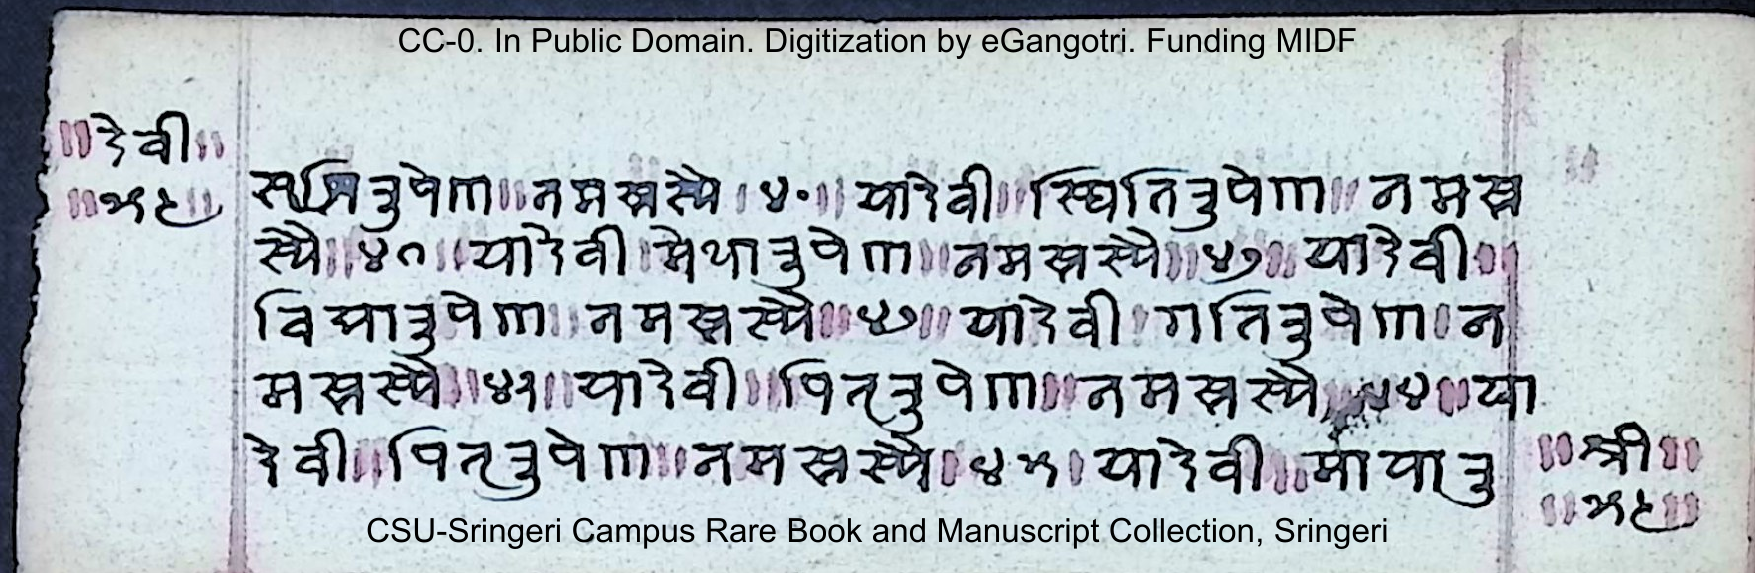 CC-0. In Public Domain. Digitization by eGangotri. Funding MIDF
॥देवी॥
॥५९॥
रूपेण॥नमस्तस्यै।४०॥यादेवी॥स्थितिरूपेण॥नमस्त
स्यै॥४१॥यादेवी॥मेधारूपेण॥नमस्तस्यै॥४२॥यादेवी॥
विद्यारूपेण॥नमस्तस्यै॥४२॥यादेवी।गतिरूपेण।न
मस्तस्यै॥४३॥यादेवी॥पितृरूपेण॥नमस्तस्यै ४४॥या
देवी॥पितृरूपेण॥नमस्तस्यै।४५।यादेवी॥मायारू
॥श्री॥
॥५९॥
CSU-Sringeri Campus Rare Book and Manuscript Collection, Sringeri